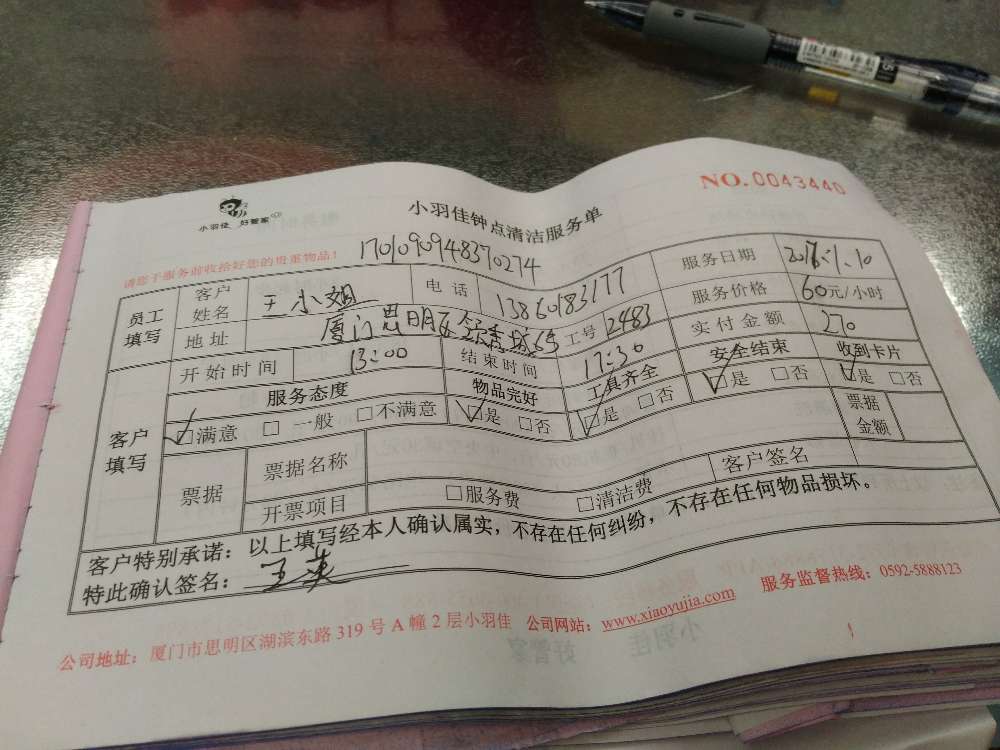 NO.0043440
小羽佳 好管家
小羽佳钟点清洁服务单
请您于服务前收拾好您的贵重物品！ 1701090948370274
员工填写 客户姓名 王小姐 电话 13860183177 服务日期
地址 厦门思明区 工号 2483 服务价格 60元/小时
客户填写 开始时间 13:00 结束时间 17:30 实付金额 270
服务态度 物品完好 工具齐全 安全结束 收到卡片
□满意 □一般 □不满意 □是 □否 □是 □否 □是 □否 □是 □否
票据 票据名称 票据金额
开票项目 □服务费 □清洁费 客户签名
客户特别承诺：以上填写经本人确认属实，不存在任何纠纷，不存在任何物品损坏。
特此确认签名：王
公司地址：厦门市思明区湖滨东路 319 号 A 幢 2 层小羽佳 公司网站：www.xiaoyujia.com 服务监督热线：0592-5888123